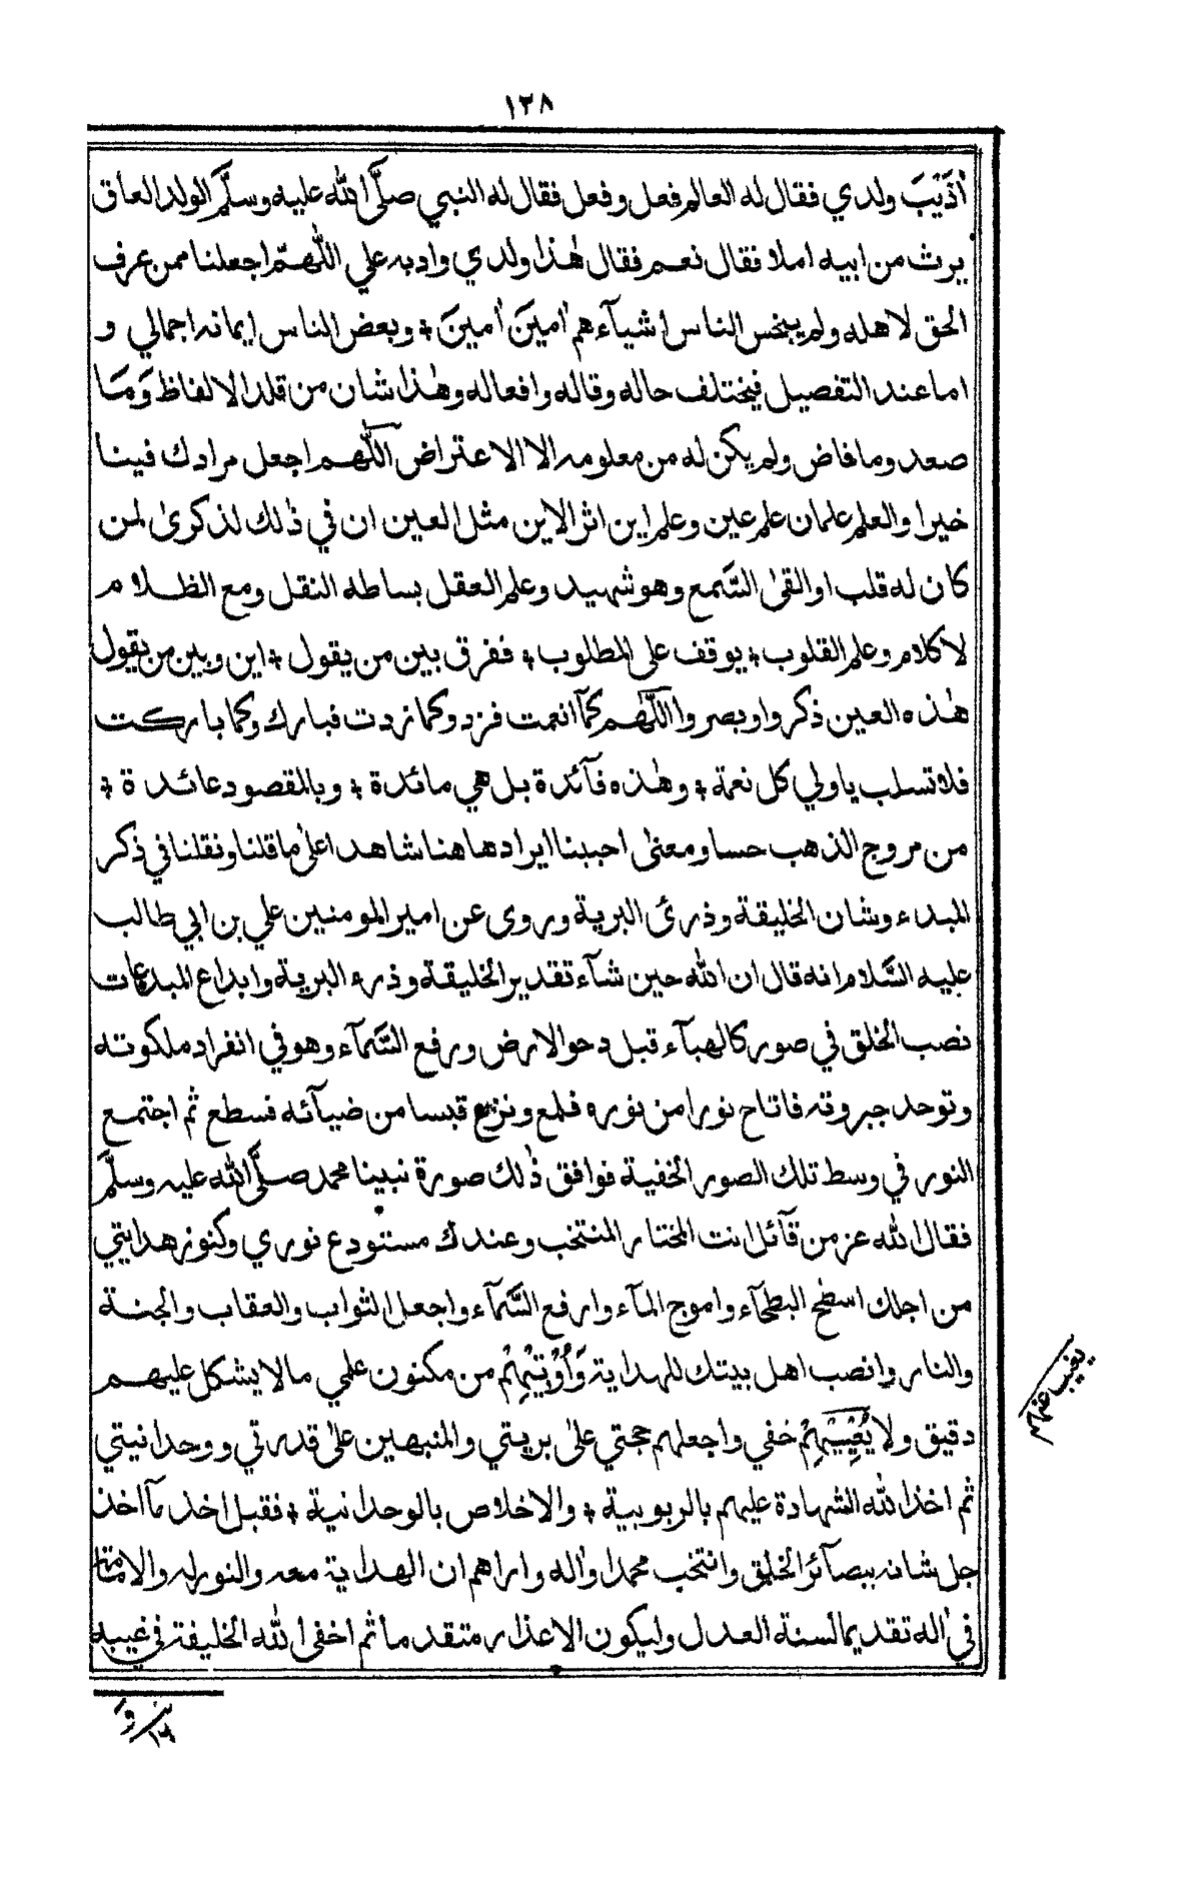 ١٢٨
أذَيْبَ ولدي فقال له العالم فعل وفعل فقال له النبي صلَّى الله عليه وسلَّم الولد العاق
يرث من ابيه املا فقال نعم فقال هٰذا ولدي وادبه علي اللّٰهمّ اجعلنا ممن عرف
الحق لاهله ولم يبخس الناس اشيآءهم اٰمينَ اٰمينَ ؛ وبعض الناس ايمانه اجمالي و
اما عند التفصيل فيختلف حاله وقاله وافعاله وهٰذا شان من قلد الالفاظ وَمَا
صعد وما فاض ولم يكن له من معلومه الا الاعتراض اللّٰهم اجعل مرادك فينا
خيرا والعلم علمان علم عين وعلم اين اثر الاين مثل العين ان في ذٰلك لذكرىٰ لمن
كان له قلب او القىٰ السَّمع وهو شهيد وعلم العقل بساطه النقل ومع الظلام
لا كلام وعلم القلوب ؛ يوقف على المطلوب ؛ ففرق بين من يقول ؛ اين وبين من يقول
هٰذه العين ذكروا وبصروا اللّٰهم كمآ انعمت فزد وكما زدت فبارك وكما باركت
فلا تسلب يا ولي كل نعمة ؛ وهٰذه فآئدة بل هي مائدة ؛ وبالمقصود عائدة ؛
من مروج الذهب حسا ومعنىٰ احببنا ايرادها هنا شاهدا علىٰ ما قلنا ونقلنا في ذكر
المبدء وشان الخليقة وذرئ البرية وروى عن امير المومنين علي بن ابي طالب
عليه السَّلام انه قال ان الله حين شآء تقدير الخليقة وذرء البرية وابداع المبدعات
نصب الخلق في صور كالهبآء قبل دحو الارض ورفع السَّمآء وهو في انفراد ملكوته
وتوحد جبروته فاتاح نورا من نوره فلمع ونزع قبسا من ضيآئه فسطع ثم اجتمع
النور في وسط تلك الصور الخفية فوافق ذٰلك صورة نبينا محمد صلَّى الله عليه وسلَّم
فقال الله عز من قآئل انت المختار المنتخب وعندك مستودع نوري وكنوز هدايتي
من اجلك اسطح البطحآء واموج المآء وارفع السَّمآء واجعل الثواب والعقاب والجنة
والنار وانصب اهل بيتك للهداية وَأُوْتِيْهِمْ من مكنون علمي ما لا يشكل عليهم
دقيق ولا يُغِيْبُهِمْ خفي واجعلهم حجتي علىٰ بريتي والمنبهين علىٰ قدرتي ووحدانيتي
ثم اخذ الله الشهادة عليهم بالربوبية ؛ والاخلاص بالوحدانية ؛ فقبل اخذ مآ اخذ
جل شانه ببصآئر الخلق وانتخب محمدا واٰله واراهم ان الهداية معه والنور له والامامة
في اٰله تقديما لسنة العدل وليكون الاعذار متقدما ثم اخفى الله الخليفة في غيبه
يغيب عنهم